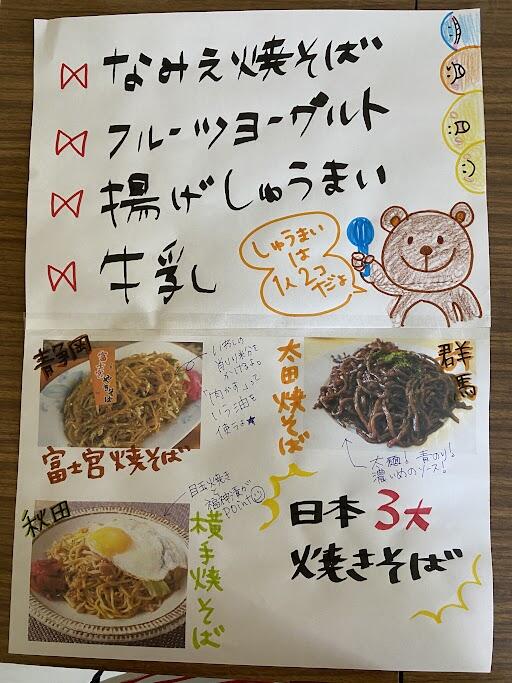 なみえ焼そば
フルーツヨーグルト
揚げしゅうまい
牛乳
しゅうまいは
1人2コ
だよ
静岡
富士宮やきそば
いわしの
削り粉を
かけるよ。
「肉かす」って
いう油を
使うよ★
富士宮焼そば
太田焼そば
群馬
太麺！青のり！
濃いめのソース！
秋田
目玉焼き
福神漬が
Point
横手焼そば
日本3大
焼きそば